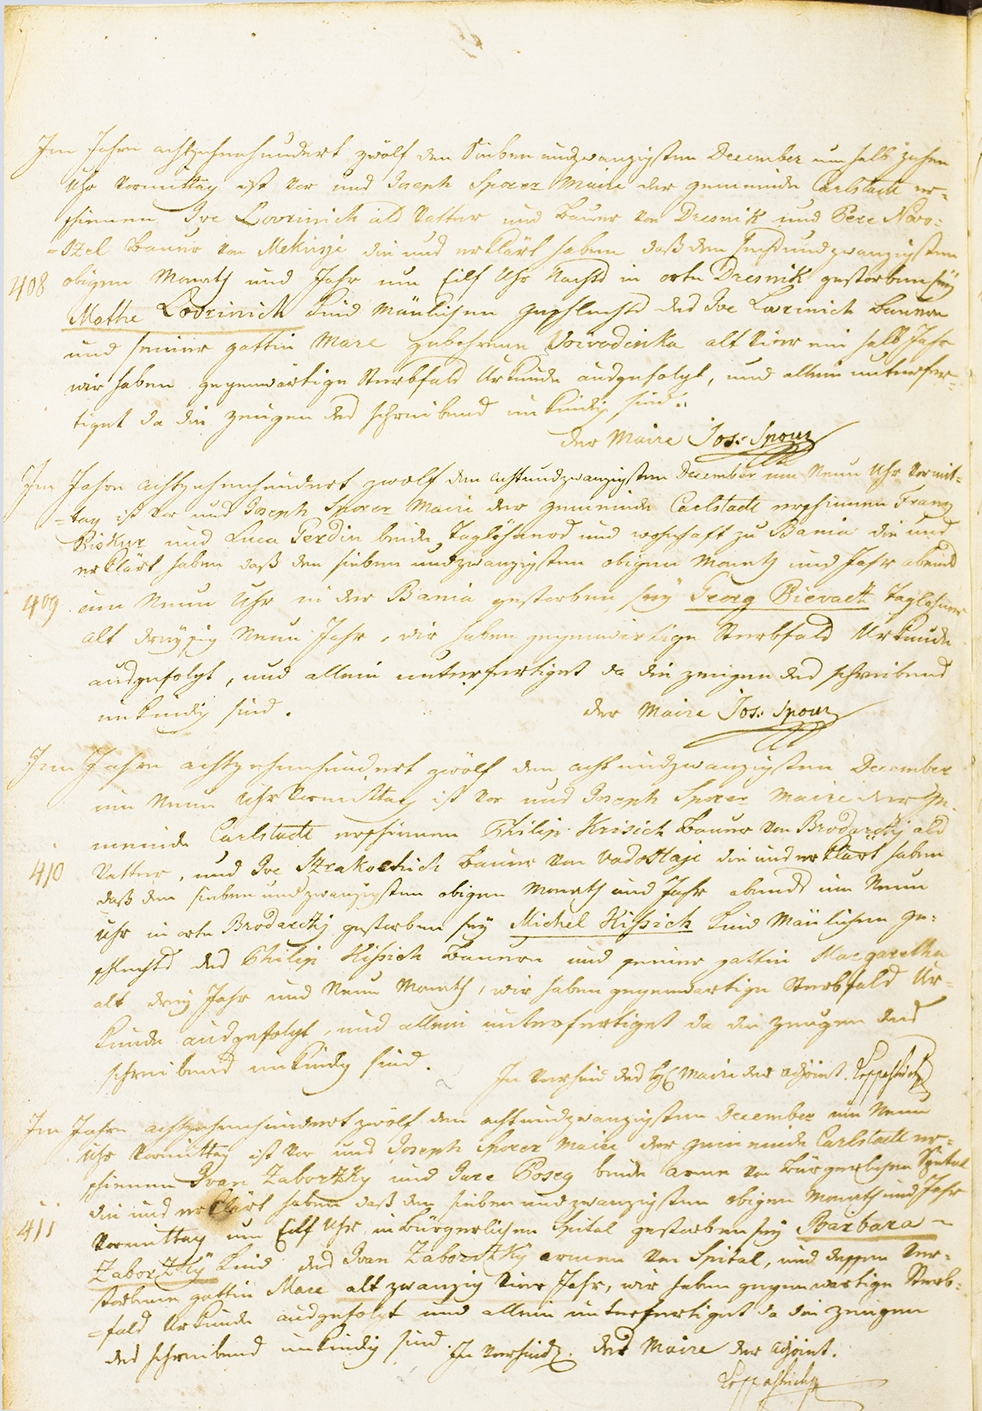 Im Jahre achtzehenhundert zwölf den Sieben und zwanzigsten December um halb zehen
Uhr Vormittag ist vor uns Joseph Sporer Maire der gemeinde Carlstadt er-
schienen Ive Lovrinich als Vatter und Bauer von Dresnik und Pere Novo-
-szel Bauer von Mekusje die uns erklärt haben daß den sechsundzwanzigsten
408 obigen Monath und Jahr um Eilf Uhr Nachts in orte Dresnik gestorben sey
Mathe Lovrinich Kind Mänlichen geschlechts des Ive Lovrinich Bauern
und seiner gattin Mare gebohrene Voivodinka alt Vier ein halb Jahr
wir haben gegenwärtige Sterbfalls Urkunde ausgefolgt, und allein unterfer-
tiget da die zeugen des schreibens unkündig sind.
der Maire Jos: Sporer
Im Jahre achtzehenhundert zwölf den achtundzwanzigsten December um Neun Uhr Vormit-
-tag ist vor uns Joseph Sporer Maire der gemeinde Carlstadt erschienen Franz
Piskur und Luca Perdin beide Taglöhner und wohnhaft zu Bania die uns
erklärt haben daß den sieben und zwanzigsten obigen Monath und Jahr abends
409 um Neun Uhr in der Bania gestorben sey Georg Pievatz Taglöhner
alt dreyßig Neun Jahr, wir haben gegenwärtige Sterbfalls Urkunde
ausgefolgt, und allein unterfertiget da die zeugen des schreibens
unkündig sind. der Maire Jos: Sporer
Im Jahre achtzehenhundert zwölf den achtundzwanzigsten December
um Neun Uhr Vormittag ist vor uns Joseph Sporer Maire der Ge-
meinde Carlstadt erschienen Philip Krisich Bauer von Brodarczy als
410 Vatter, und Ive Strakochich Bauer von Vodostaje die uns erklärt haben
daß den sieben und zwanzigsten obigen Monath und Jahr abends um Neun
Uhr in orte Brodarczy gestorben sey Michel Kissich Kind Mänlichen ge-
schlechts des Philip Kissich Bauern und seiner gattin Margaretha
alt drey Jahr und Neun Monath, wir haben gegenwärtige Sterbfalls Ur-
kunde ausgefolgt, und allein unterfertiget da die zeugen des
schreibens unkündig sind. In Verhind des H Maire der adjoint.
Im Jahre achtzehenhundert zwölf den achtundzwanzigsten December um Neun
Uhr Vormittag ist vor uns Joseph Sporer Maire der gemeinde Carlstadt er-
schienen Ivan Zabortzky und Jure Poseg beide arme von bürgerlichen Spital
die uns erklärt haben daß den sieben und zwanzigsten obigen Monath und Jahr
411 Vormittag um Eilf Uhr in bürgerlichen Spital gestorben sey Barbara
Zabortzky Kind des Ivan Zabortzky armen von Spital, und dessen Ver-
storbene gattin Mare alt zwanzig Vier Jahr, wir haben gegenwärtige Sterb-
-falls Urkunde ausgefolgt und allein unterfertiget da die zeugen
des schreibens unkündig sind. In Verhind. des Maire der adjoint.